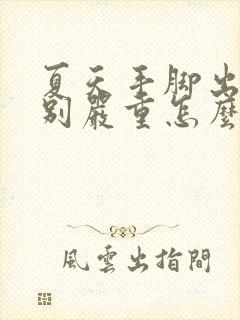 夏天手脚出
别嚴重怎麽
風雲出指間